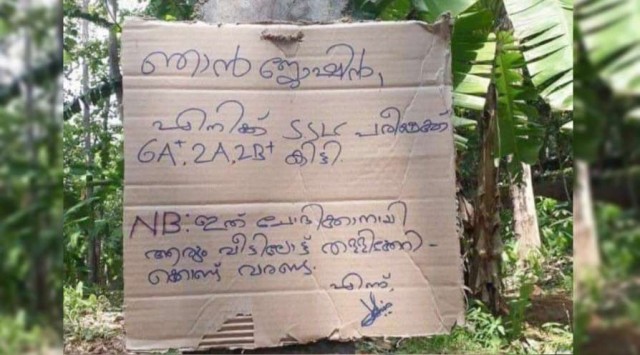 ഞാൻ ജോഷിൻ,
എനിക്ക് SSLC പരീക്ഷക്ക്
6A⁺, 2A, 2B⁺ കിട്ടി.
NB: ഇത് ചോദിക്കാനായി
ആരും വീട്ടിലോട്ട് തള്ളിക്കേറി-
ക്കൊണ്ട് വരണ്ട.
എന്ന്,